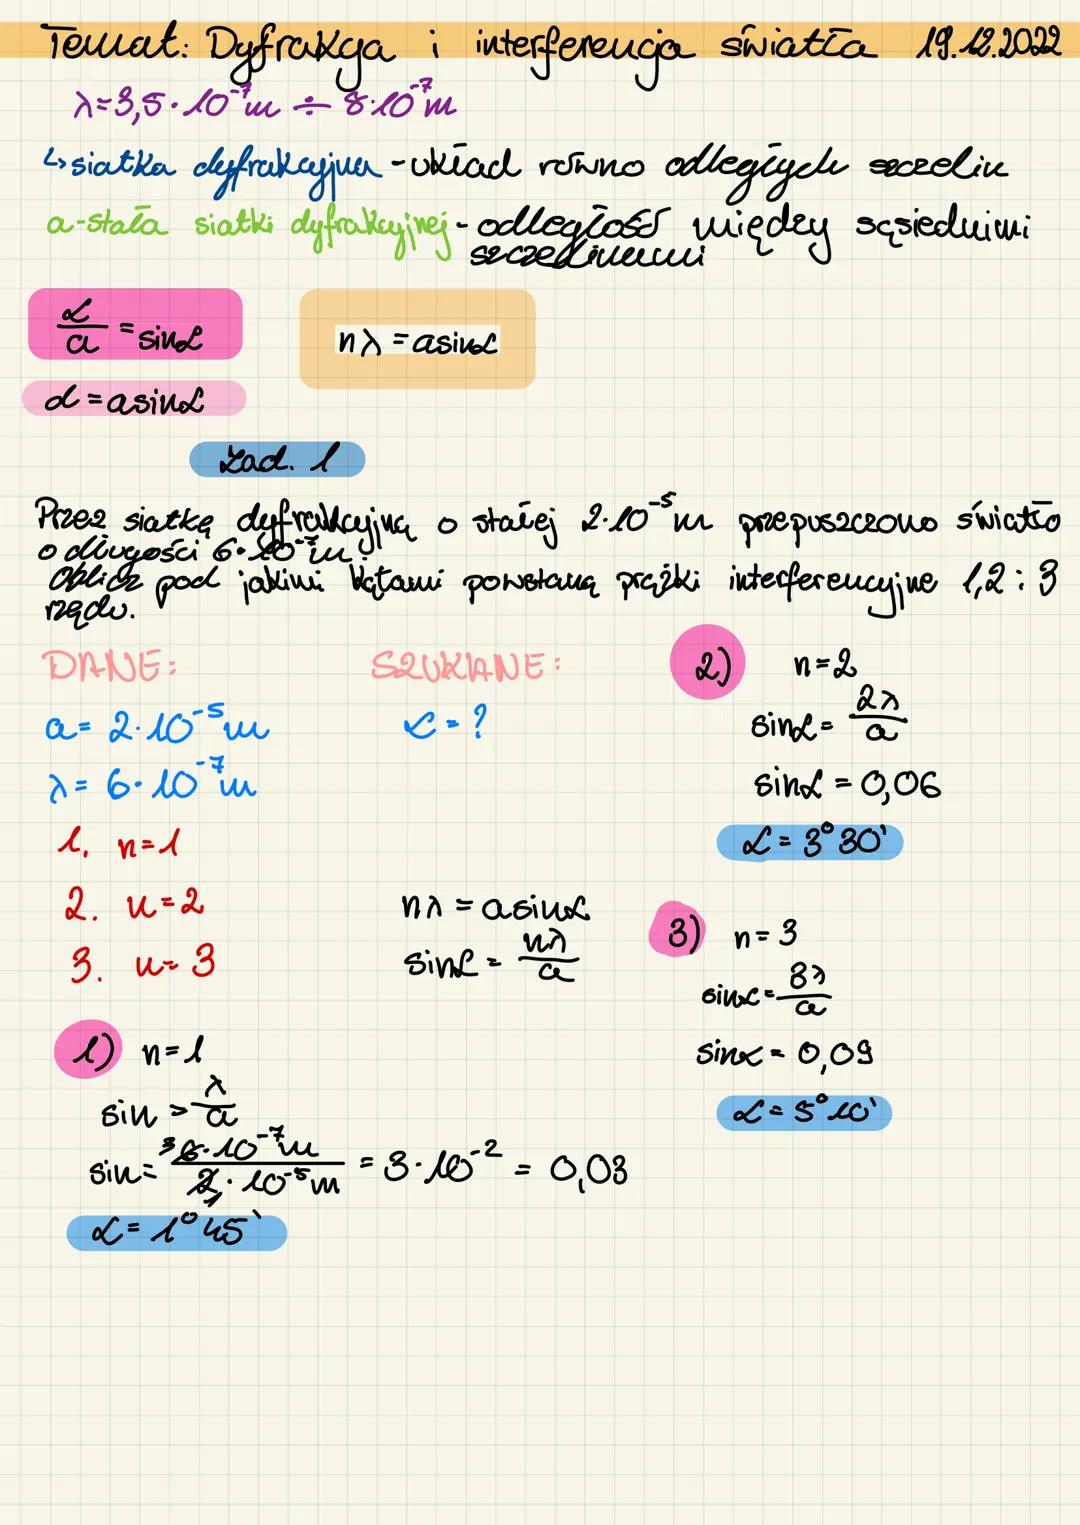 Temat: Dyfrakcja i interferencja światła 19.12.2022
λ=3,5·10⁻⁷m ÷ 8·10⁻⁷m
↳siatka dyfrakcyjna - układ równo odległych szczelin
a-stała siatki dyfrakcyjnej - odległość między sąsiednimi
szczelinami
d/a = sinα
nλ = asinα
d = asinα
Zad. 1
Przez siatkę dyfrakcyjną o stałej 2·10⁻⁵m przepuszczono światło
o długości 6·10⁻⁷m.
Oblicz pod jakimi kątami powstaną prążki interferencyjne 1,2 i 3
rzędu.
DANE:
SZUKANE:
a= 2·10⁻⁵m
α = ?
λ= 6·10⁻⁷m
1. n=1
2. n=2
3. n=3
nλ = asinα
sinα = nλ/a
1) n=1
sin = λ/a
sin= 3 6·10⁻⁷m / 2 1·10⁻⁵m = 3·10⁻² = 0,03
α = 1°45'
2) n=2
sinα = 2λ/a
sinα = 0,06
α = 3°30'
3) n=3
sinα = 3λ/a
sinα = 0,09
α = 5°10'